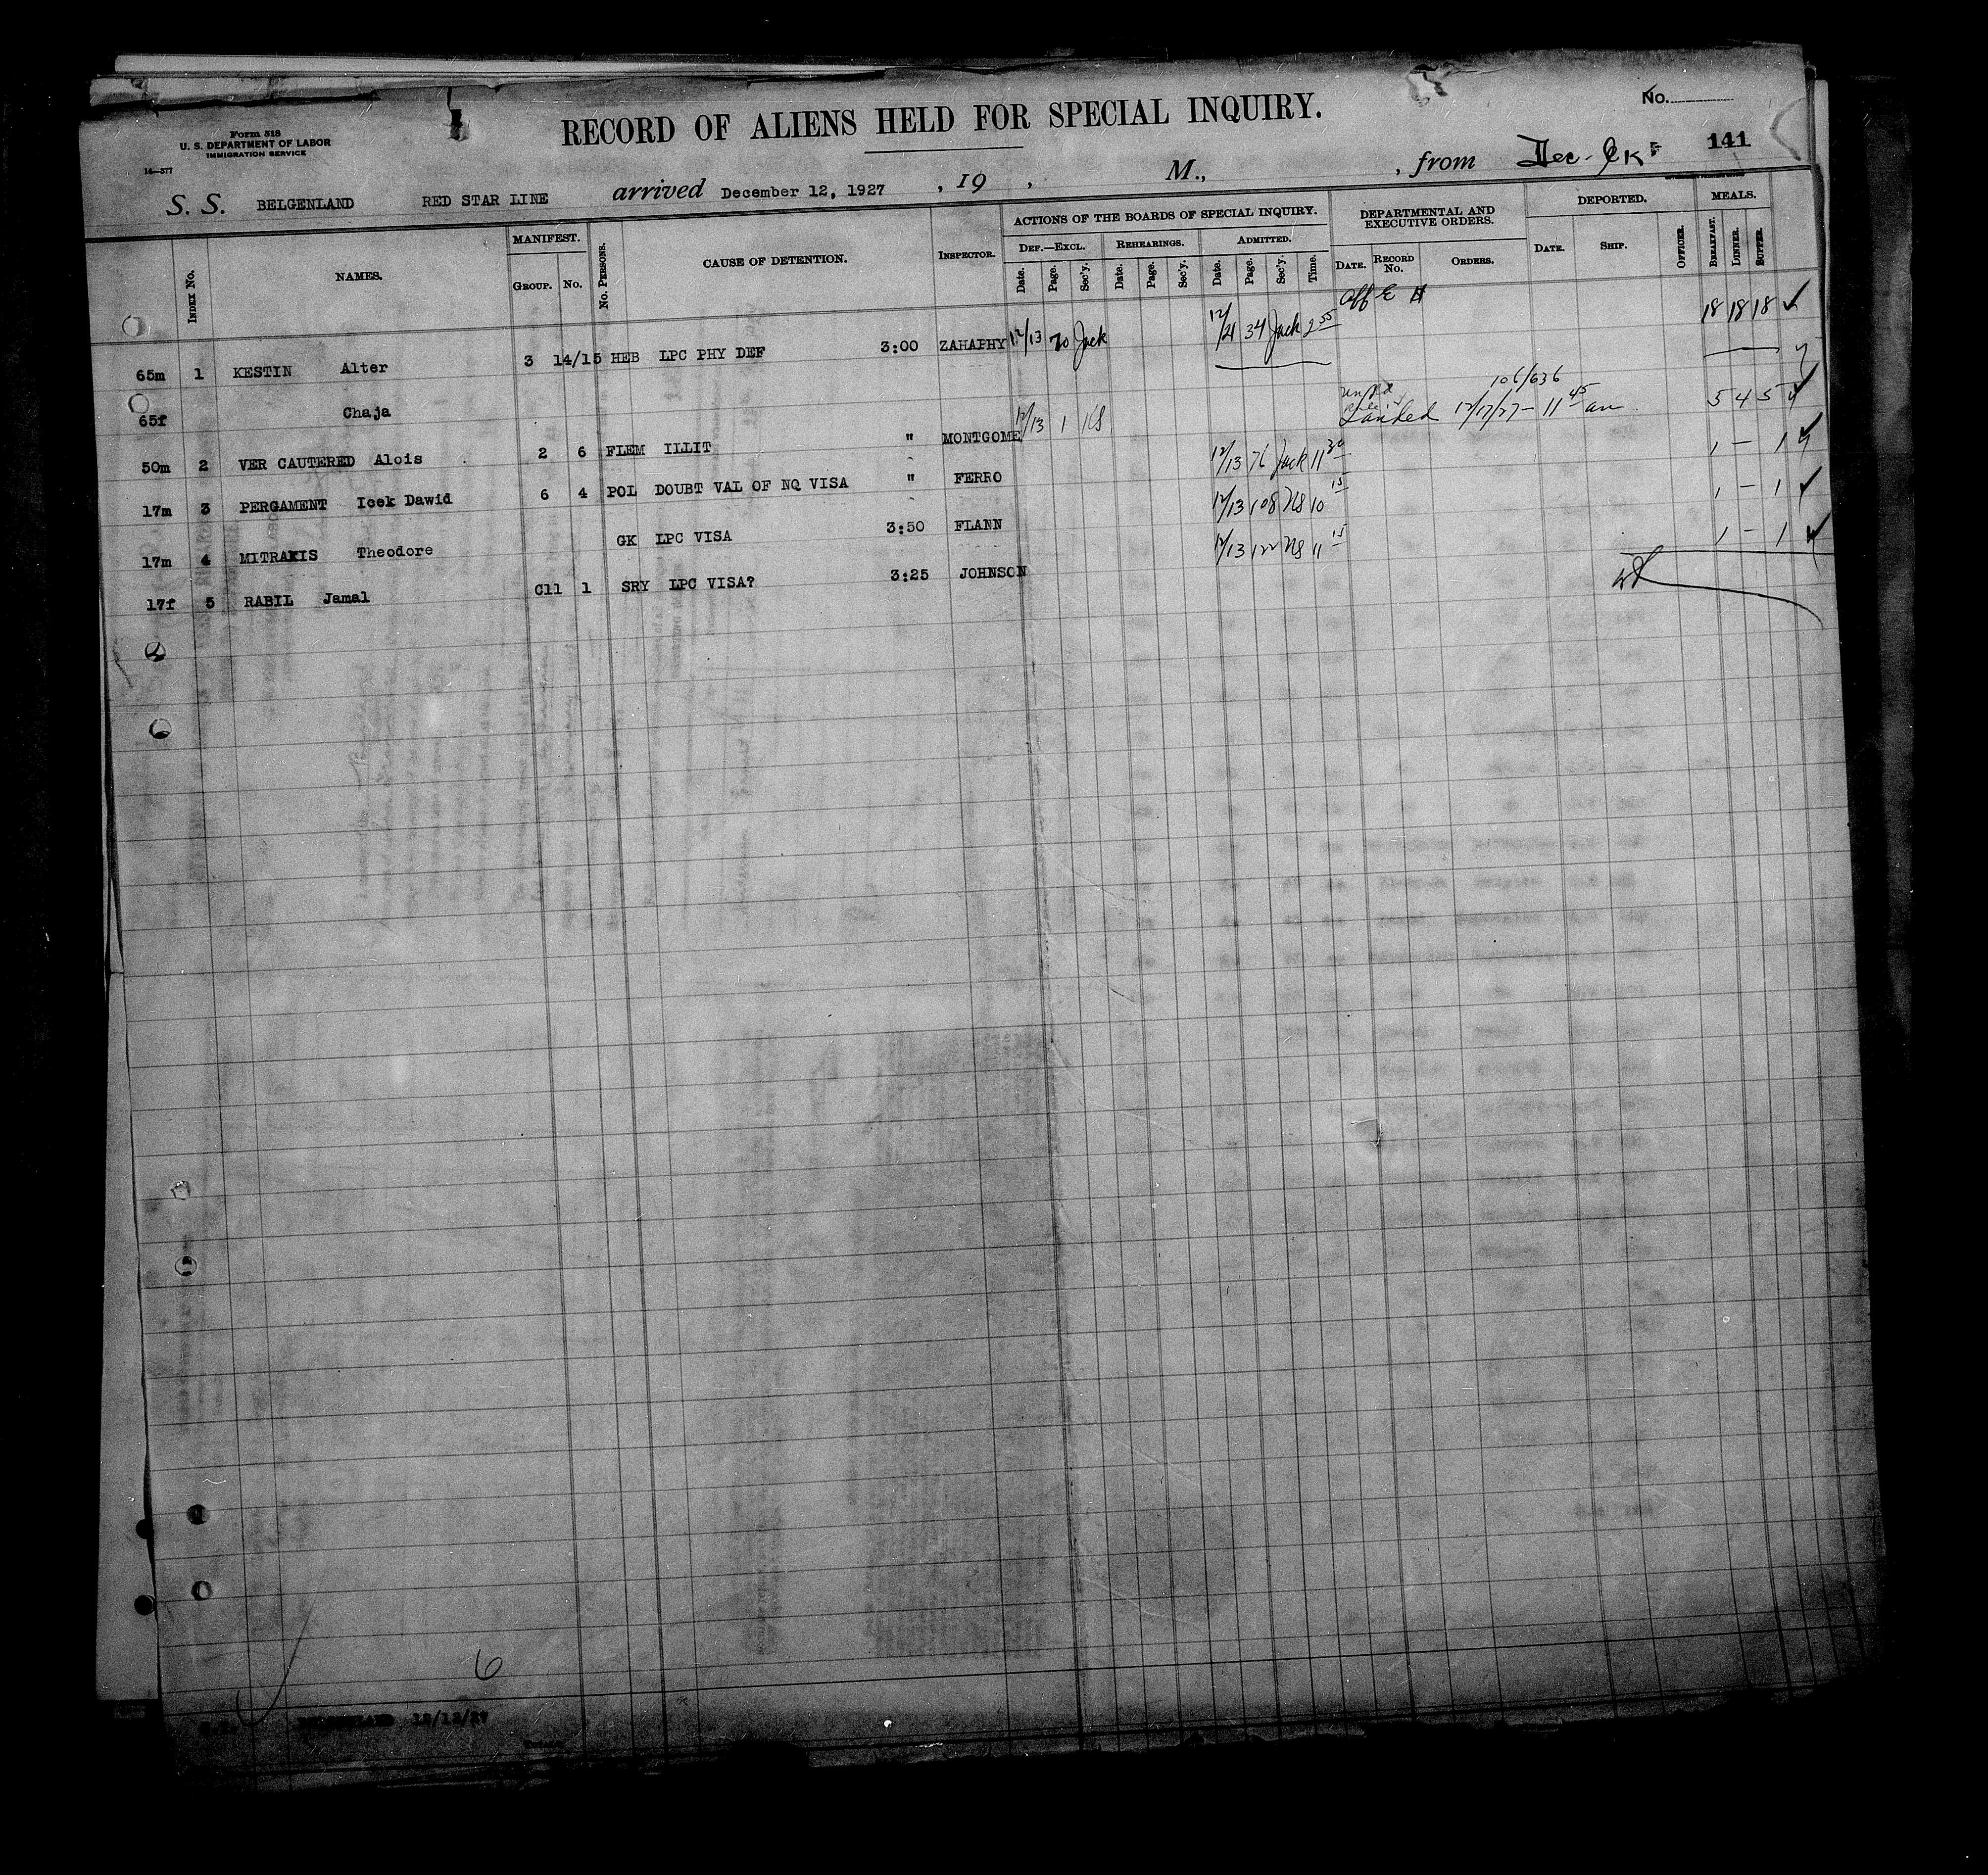 Form 518
U. S. DEPARTMENT OF LABOR
IMMIGRATION SERVICE
14—377
RECORD OF ALIENS HELD FOR SPECIAL INQUIRY.
No.
141
S. S. BELGENLAND RED STAR LINE arrived December 12, 1927 , 19 , M., , from
INDEX No. NAMES. MANIFEST. GROUP. No. No. PERSONS. CAUSE OF DETENTION. INSPECTOR. ACTIONS OF THE BOARDS OF SPECIAL INQUIRY. DEF.—EXCL. Date. Page. Sec'y. REHEARINGS. Date. Page. Sec'y. ADMITTED. Date. Page. Sec'y. Time. DEPARTMENTAL AND EXECUTIVE ORDERS. DATE. RECORD No. ORDERS. DEPORTED. DATE. SHIP. OFFICER. MEALS. BREAKFAST. DINNER. SUPPER.
65m 1 KESTIN Alter 3 14/15 HEB LPC PHY DEF 3:00 ZAHAPHY 12/13 70 Jack 12/21 34 Jack 2 55 18 18 18
65f Chaja
50m 2 VER CAUTERED Alois 2 6 FLEM ILLIT " MONTGOME 12/13 1 106/636 Landed 12/17/27 - 11 45 am 5 4 5
17m 3 PERGAMENT Icek Dawid 6 4 POL DOUBT VAL OF NQ VISA " FERRO 12/13 76 Jack 11 30 1 — 1
17m 4 MITRAKIS Theodore GK LPC VISA 3:50 FLANN 12/13 108 NS 10 15 1 — 1
17f 5 RABIL Jamal C11 1 SRY LPC VISA? 3:25 JOHNSON 12/13 122 NS 11 15 1 — 1
6
12/12/27